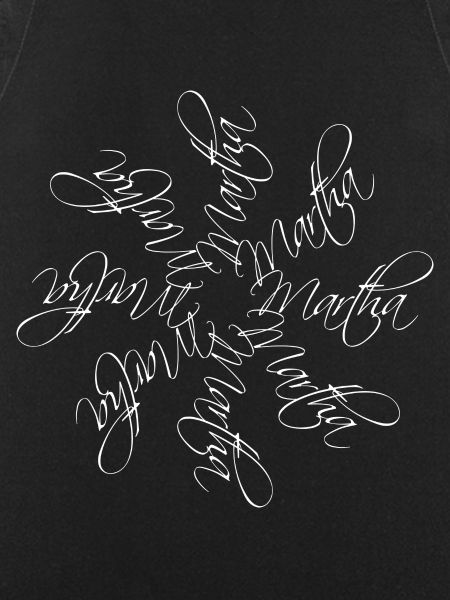 Martha
Martha
Martha
Martha
Martha
Martha
Martha
Martha